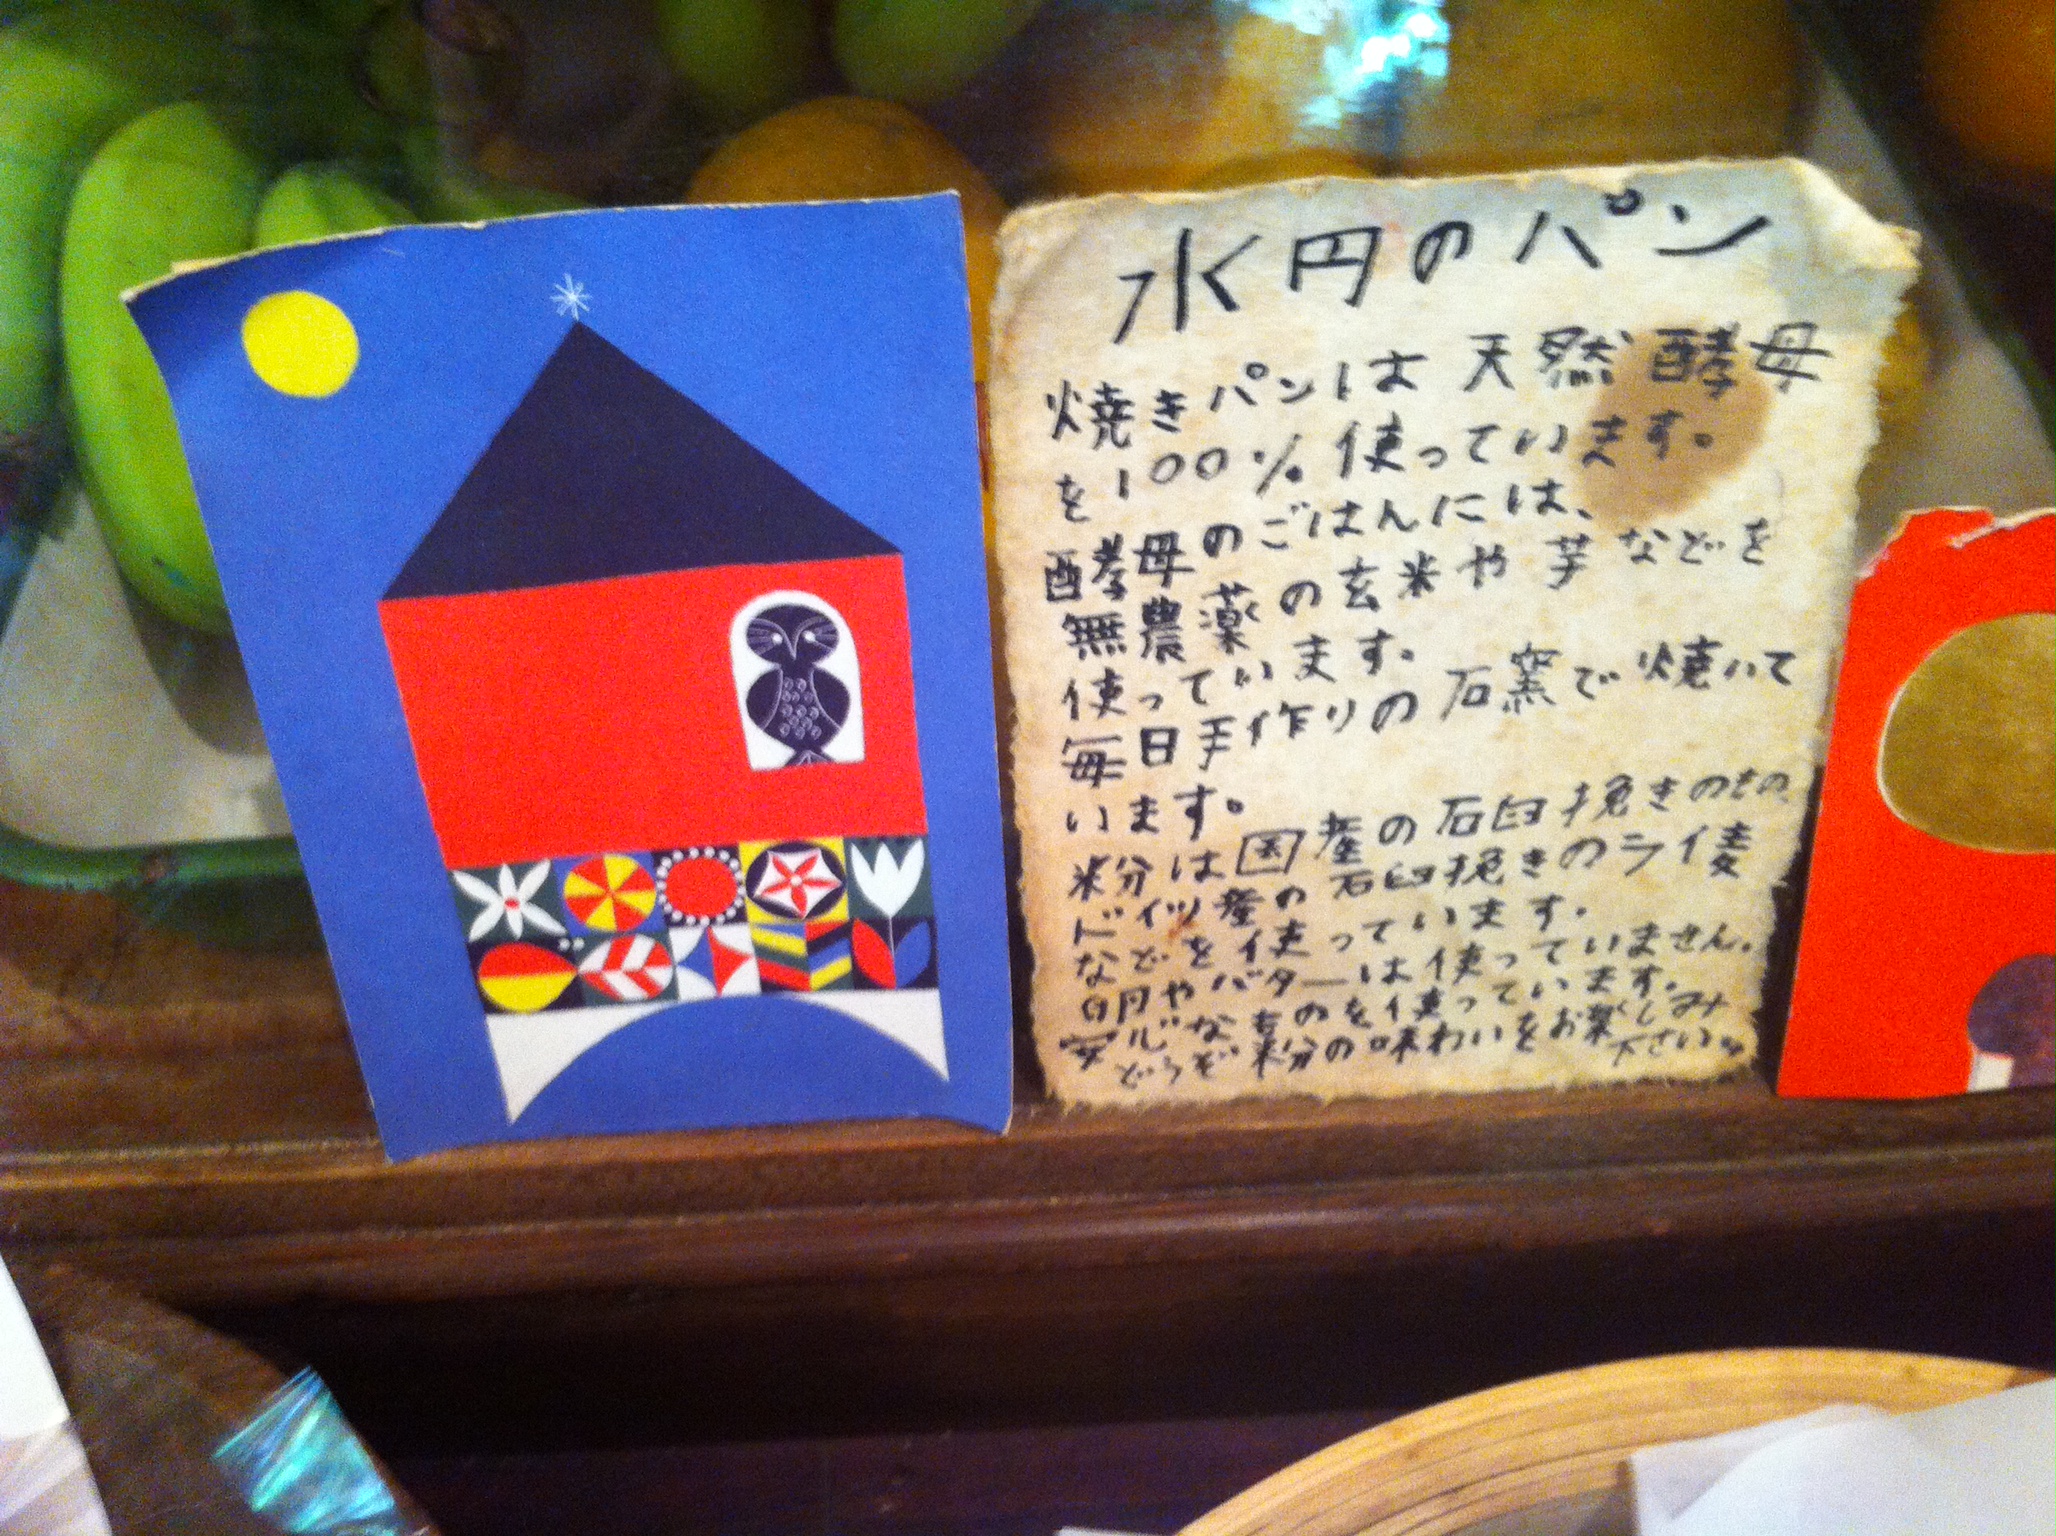 水円のパン
焼きパンは天然酵母
を100%使っています。
酵母のごはんには、
無農薬の玄米や芋などを
使っています。
毎日手作りの石窯で焼いて
います。
粉は国産の石臼挽きのもの、
ドイツ産の石臼挽きのライ麦
などを使っています。
卵やバターは使っていません。
安心なものを使っています。
どうぞ粉の味わいをお楽しみ
下さい